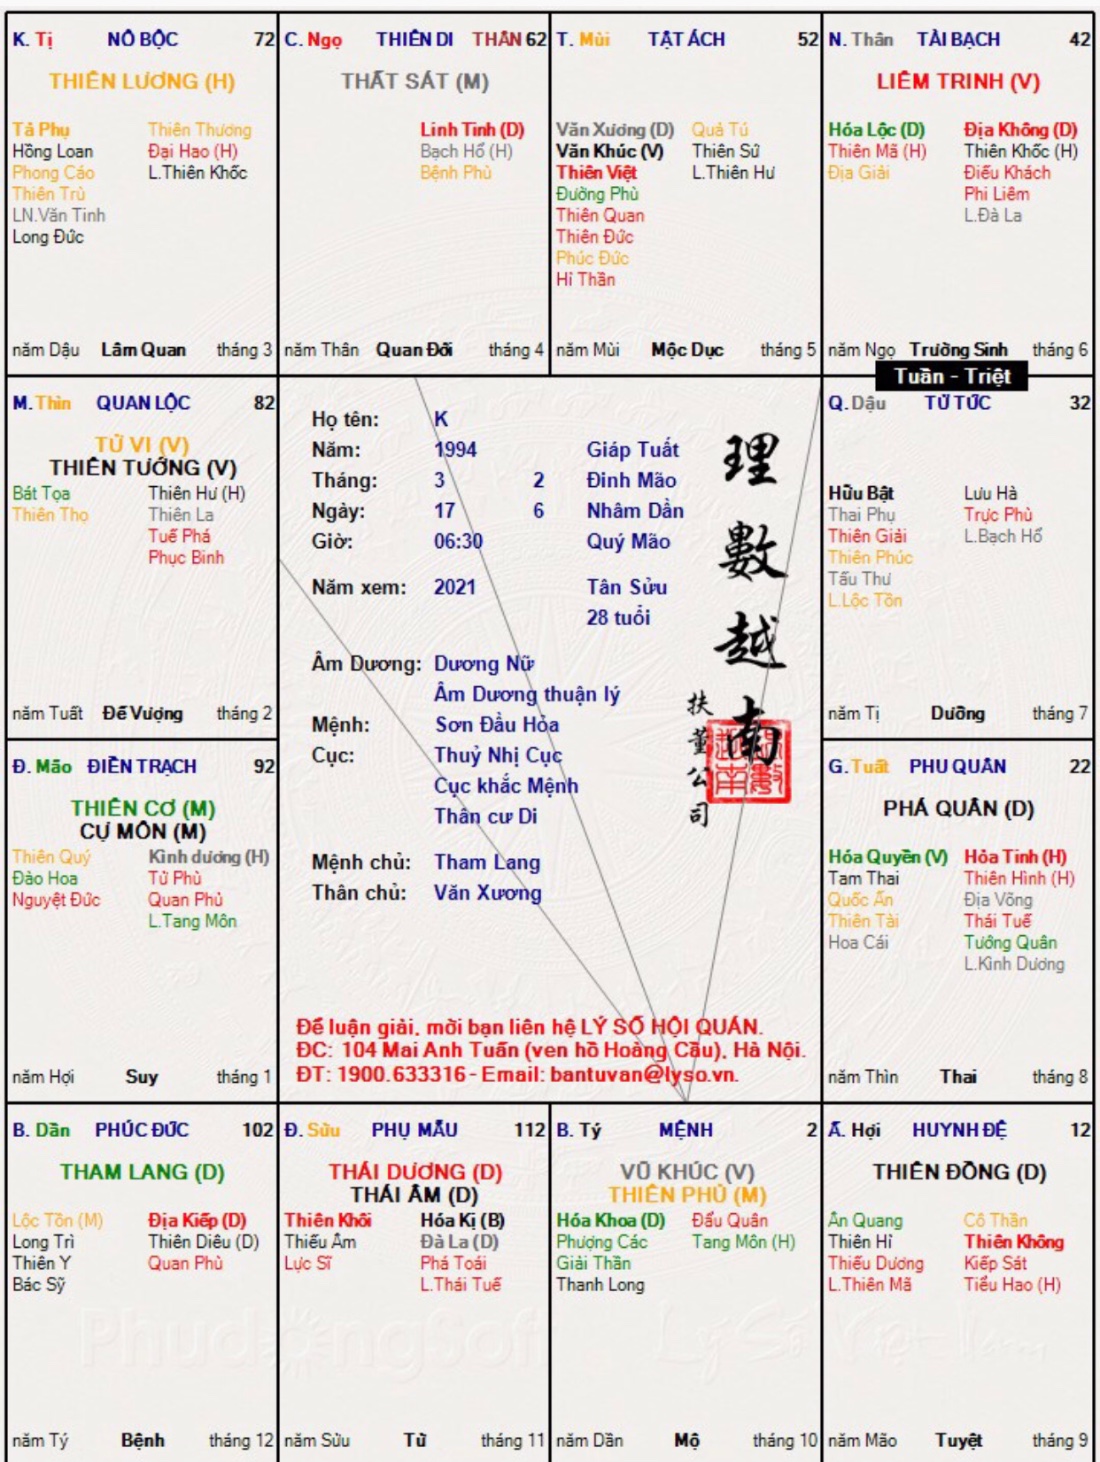 K. Tị NÔ BỘC 72
THIÊN LƯƠNG (H)
Tả Phụ Thiên Thương
Hồng Loan Đại Hao (H)
Phong Cáo L.Thiên Khốc
Thiên Trù
LN.Văn Tinh
Long Đức
năm Dậu Lâm Quan tháng 3
C. Ngọ THIÊN DI THÂN 62
THẤT SÁT (M)
Linh Tinh (D)
Bạch Hổ (H)
Bệnh Phù
năm Thân Quan Đới tháng 4
T. Mùi TẬT ÁCH 52
Văn Xương (D) Quả Tú
Văn Khúc (V) Thiên Sứ
Thiên Việt L.Thiên Hư
Đường Phù
Thiên Quan
Thiên Đức
Phúc Đức
Hỉ Thần
năm Mùi Mộc Dục tháng 5
N. Thân TÀI BẠCH 42
LIÊM TRINH (V)
Hóa Lộc (D) Địa Không (D)
Thiên Mã (H) Thiên Khốc (H)
Địa Giải Điếu Khách
Phi Liêm
L.Đà La
năm Ngọ Trường Sinh tháng 6
Tuần - Triệt
M. Thìn QUAN LỘC 82
TỬ VI (V)
THIÊN TƯỚNG (V)
Bát Tọa Thiên Hư (H)
Thiên Thọ Thiên La
Tuế Phá
Phục Binh
năm Tuất Đế Vượng tháng 2
Họ tên: K
Năm: 1994 Giáp Tuất
Tháng: 3 2 Đinh Mão
Ngày: 17 6 Nhâm Dần
Giờ: 06:30 Quý Mão
Năm xem: 2021 Tân Sửu
28 tuổi
Âm Dương: Dương Nữ
Âm Dương thuận lý
Mệnh: Sơn Đầu Hỏa
Cục: Thuỷ Nhị Cục
Cục khắc Mệnh
Thân cư Di
Mệnh chủ: Tham Lang
Thân chủ: Văn Xương
理數越南
扶董公司
Để luận giải, mời bạn liên hệ LÝ SỐ HỘI QUÁN.
ĐC: 104 Mai Anh Tuấn (ven hồ Hoàng Cầu), Hà Nội.
ĐT: 1900.633316 - Email: bantuvan@lyso.vn.
Q. Dậu TỬ TỨC 32
Hữu Bật Lưu Hà
Thai Phụ Trực Phù
Thiên Giải L.Bạch Hổ
Thiên Phúc
Tấu Thư
L.Lộc Tồn
năm Tị Dưỡng tháng 7
Đ. Mão ĐIỀN TRẠCH 92
THIÊN CƠ (M)
CỰ MÔN (M)
Thiên Quý Kình dương (H)
Đào Hoa Tử Phù
Nguyệt Đức Quan Phủ
L.Tang Môn
năm Hợi Suy tháng 1
G. Tuất PHU QUÂN 22
PHÁ QUÂN (D)
Hóa Quyền (V) Hỏa Tinh (H)
Tam Thai Thiên Hình (H)
Quốc Ấn Địa Võng
Thiên Tài Thái Tuế
Hoa Cái Tướng Quân
L.Kình Dương
năm Thìn Thai tháng 8
B. Dần PHÚC ĐỨC 102
THAM LANG (D)
Lộc Tồn (M) Địa Kiếp (D)
Long Trì Thiên Diêu (D)
Thiên Y Quan Phù
Bác Sỹ
năm Tý Bệnh tháng 12
Đ. Sửu PHỤ MẪU 112
THÁI DƯƠNG (D)
THÁI ÂM (D)
Thiên Khôi Hóa Kị (B)
Thiếu Âm Đà La (D)
Lực Sĩ Phá Toái
L.Thái Tuế
năm Sửu Tử tháng 11
B. Tý MỆNH 2
VŨ KHÚC (V)
THIÊN PHỦ (M)
Hóa Khoa (D) Đẩu Quân
Phượng Các Tang Môn (H)
Giải Thần
Thanh Long
năm Dần Mộ tháng 10
Ấ. Hợi HUYNH ĐỆ 12
THIÊN ĐỒNG (D)
Ân Quang Cô Thần
Thiên Hỉ Thiên Không
Thiếu Dương Kiếp Sát
L.Thiên Mã Tiểu Hao (H)
năm Mão Tuyệt tháng 9